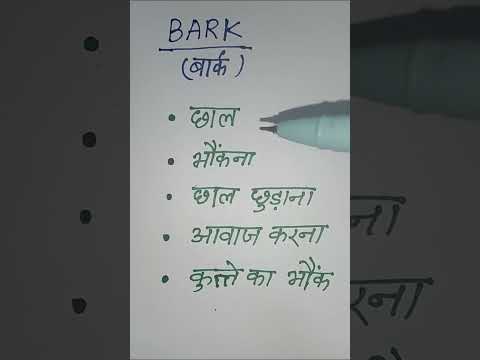 BARK
(बार्क)
• छाल
• भौंकना
• छाल छुड़ाना
• आवाज करना
• कुत्ते का भौंक